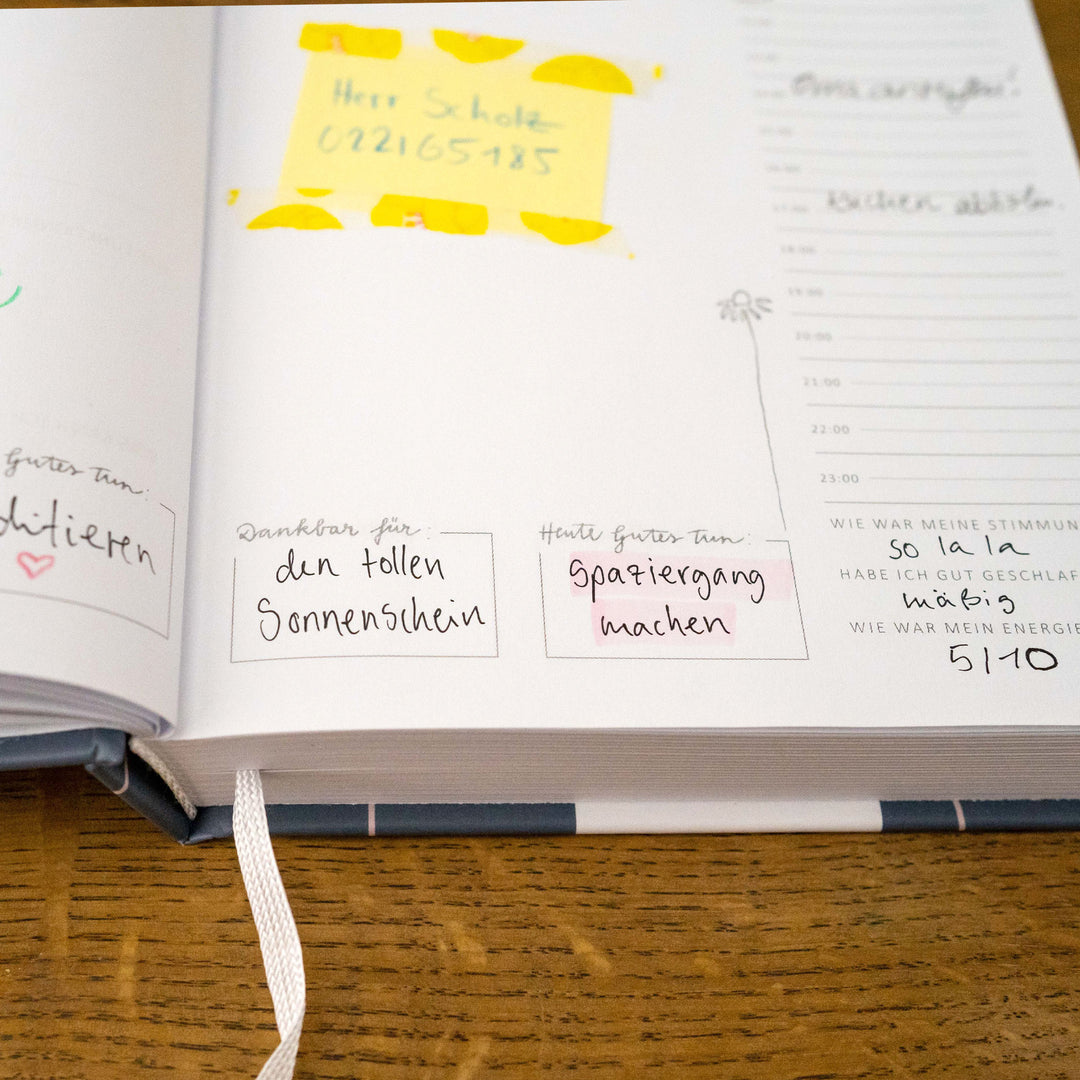 Gutes tun:
ditieren
Herr Scholz
022165185
Dankbar für:
den tollen
Sonnenschein
Heute Gutes tun:
Spaziergang
machen
18:00
19:00
20:00
21:00
22:00
23:00
WIE WAR MEINE STIMMUN
so la la
HABE ICH GUT GESCHLAF
mäßig
WIE WAR MEIN ENERGIE
5/10